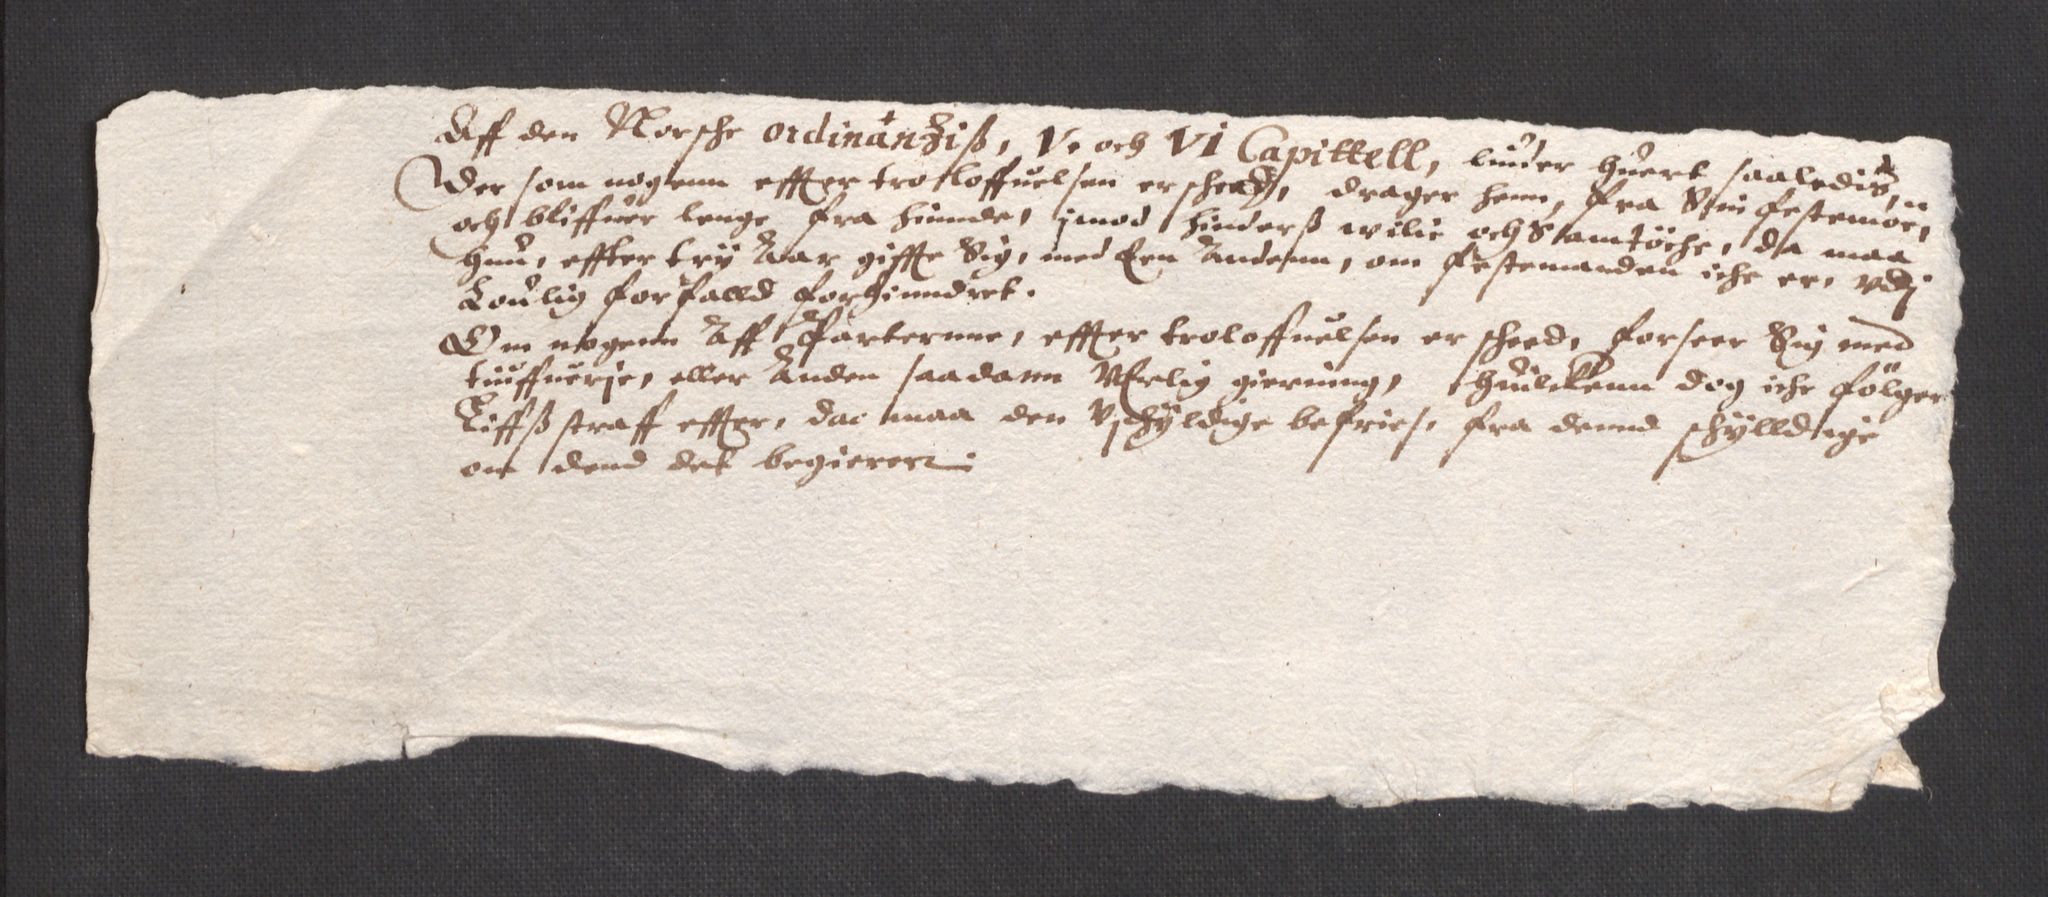 Aff den Norsche ordinanziß, V. och VI Capittell, liuder huert saaledis,
Der som nogenn effter trolloffuelsen er scheed, drager henn, fra Sin festemöe,
och bliffuer lenge fra hinnde, imod hinderß wilie och Samtöche, da maa
hun, effter try Aar giffte Sig, med Een Andenn, om festemanden iche er, vdj
Loulig forfalld forhinndret.
Om nogenn Aff Parternne, effter troloffuelsen er scheed, forseer Sig med
tiuffuerje, eller Anden saadann VErlig gierning, huilckenn dog iche fölger
Liffß straff effter, daa maa den Vschyldige befries, fra dennd schylldige
om dend det begierer.